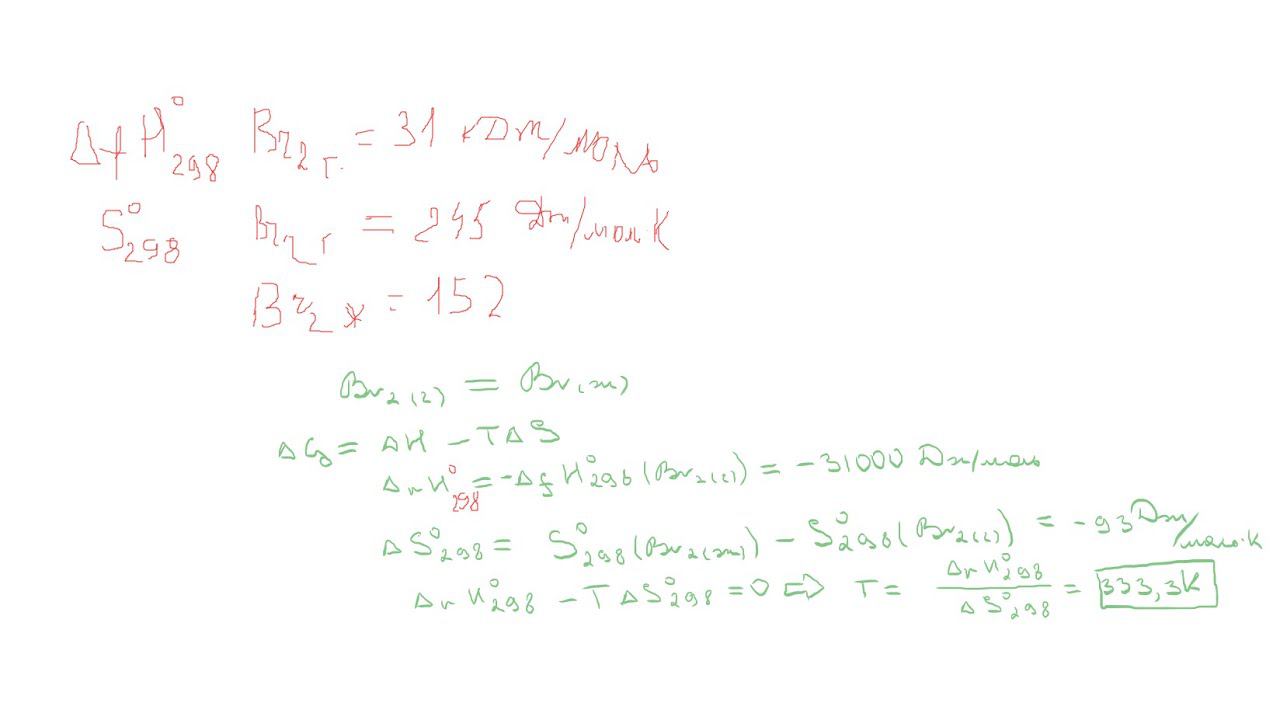 ΔfH°298 Br2 г. = 31 кДж/моль
S°298 Br2 г = 245 Дж/мольК
Br2 ж = 152
Br2(г) = Br(ж)
ΔG = ΔH - TΔS
ΔrH°298 = -ΔfH°298(Br2(г)) = -31000 Дж/моль
ΔS°298 = S°298(Br2(ж)) - S°298(Br2(г)) = -93 Дж/моль·К
ΔrH°298 - TΔS°298 = 0 ⇒ T = ΔrH°298/ΔS°298 = 333,3K